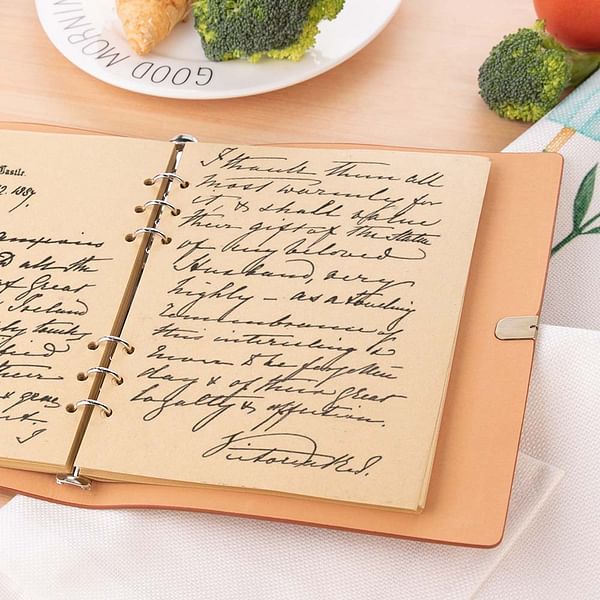 GOOD MORNIN
Castle.
1887.
anxious
all the
of Great
Ireland
their
I
I thank them all
most warmly for
it & shall value
their gift of the Statue
of my beloved
Husband, very
highly – as a touching
remembrance of
this interesting &
never to be forgotten
day & of their great
loyalty & affection.
Victoria R.I.